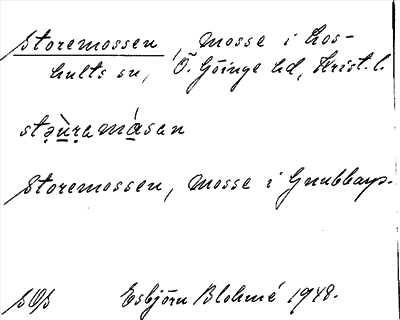 Storemossen, mosse i Los-
hults sn, Ö. Göinge hd, Krist. l.
stəùramásan
Storemossen, mosse i Gnubbarp.
Esbjörn Blohmé 1948.